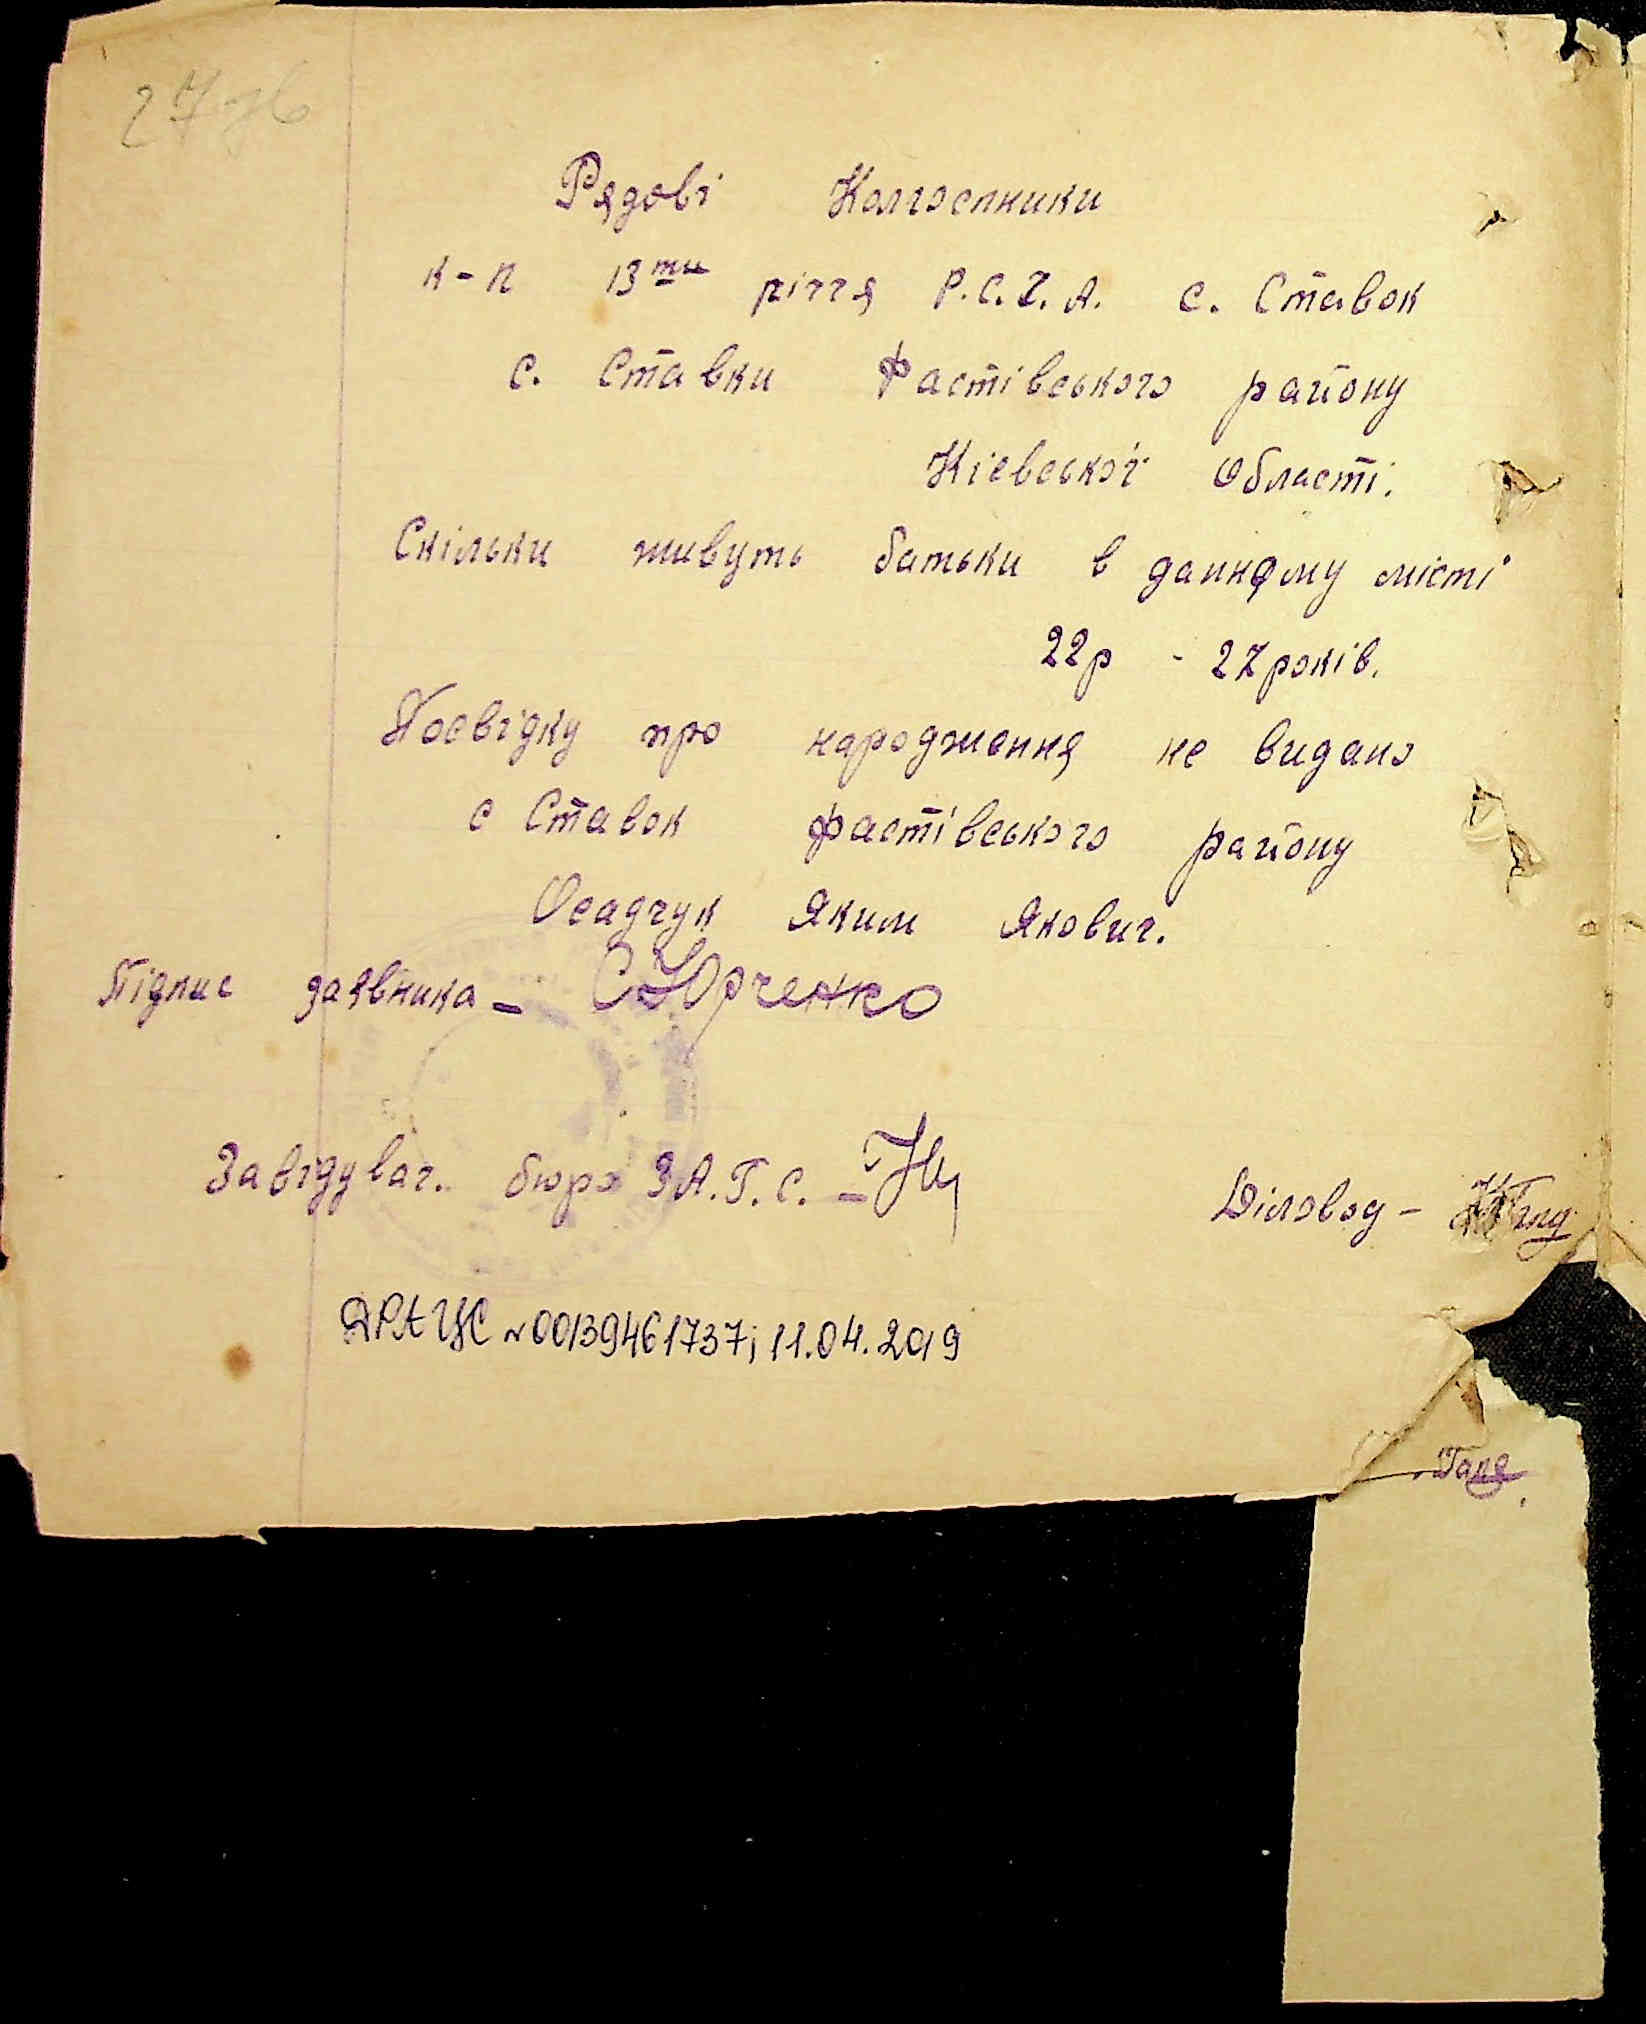 27зв
Рядові Колгоспники
к-п 13ти річчя Р.С.Ч.А. с. Ставок
с. Ставки Фастівського району
Кіевської Області.
Скільки живуть батьки в данному місті
22р - 27років.
Посвідку про народження не видано
с Ставок фастівського району
Осадчук Яким Якович.
Підпис заявника - СЮрченко
Завідувач. бюро З.А.Г.С. -
Діловод -
ДРАЦС №00139461737; 11.04.2019